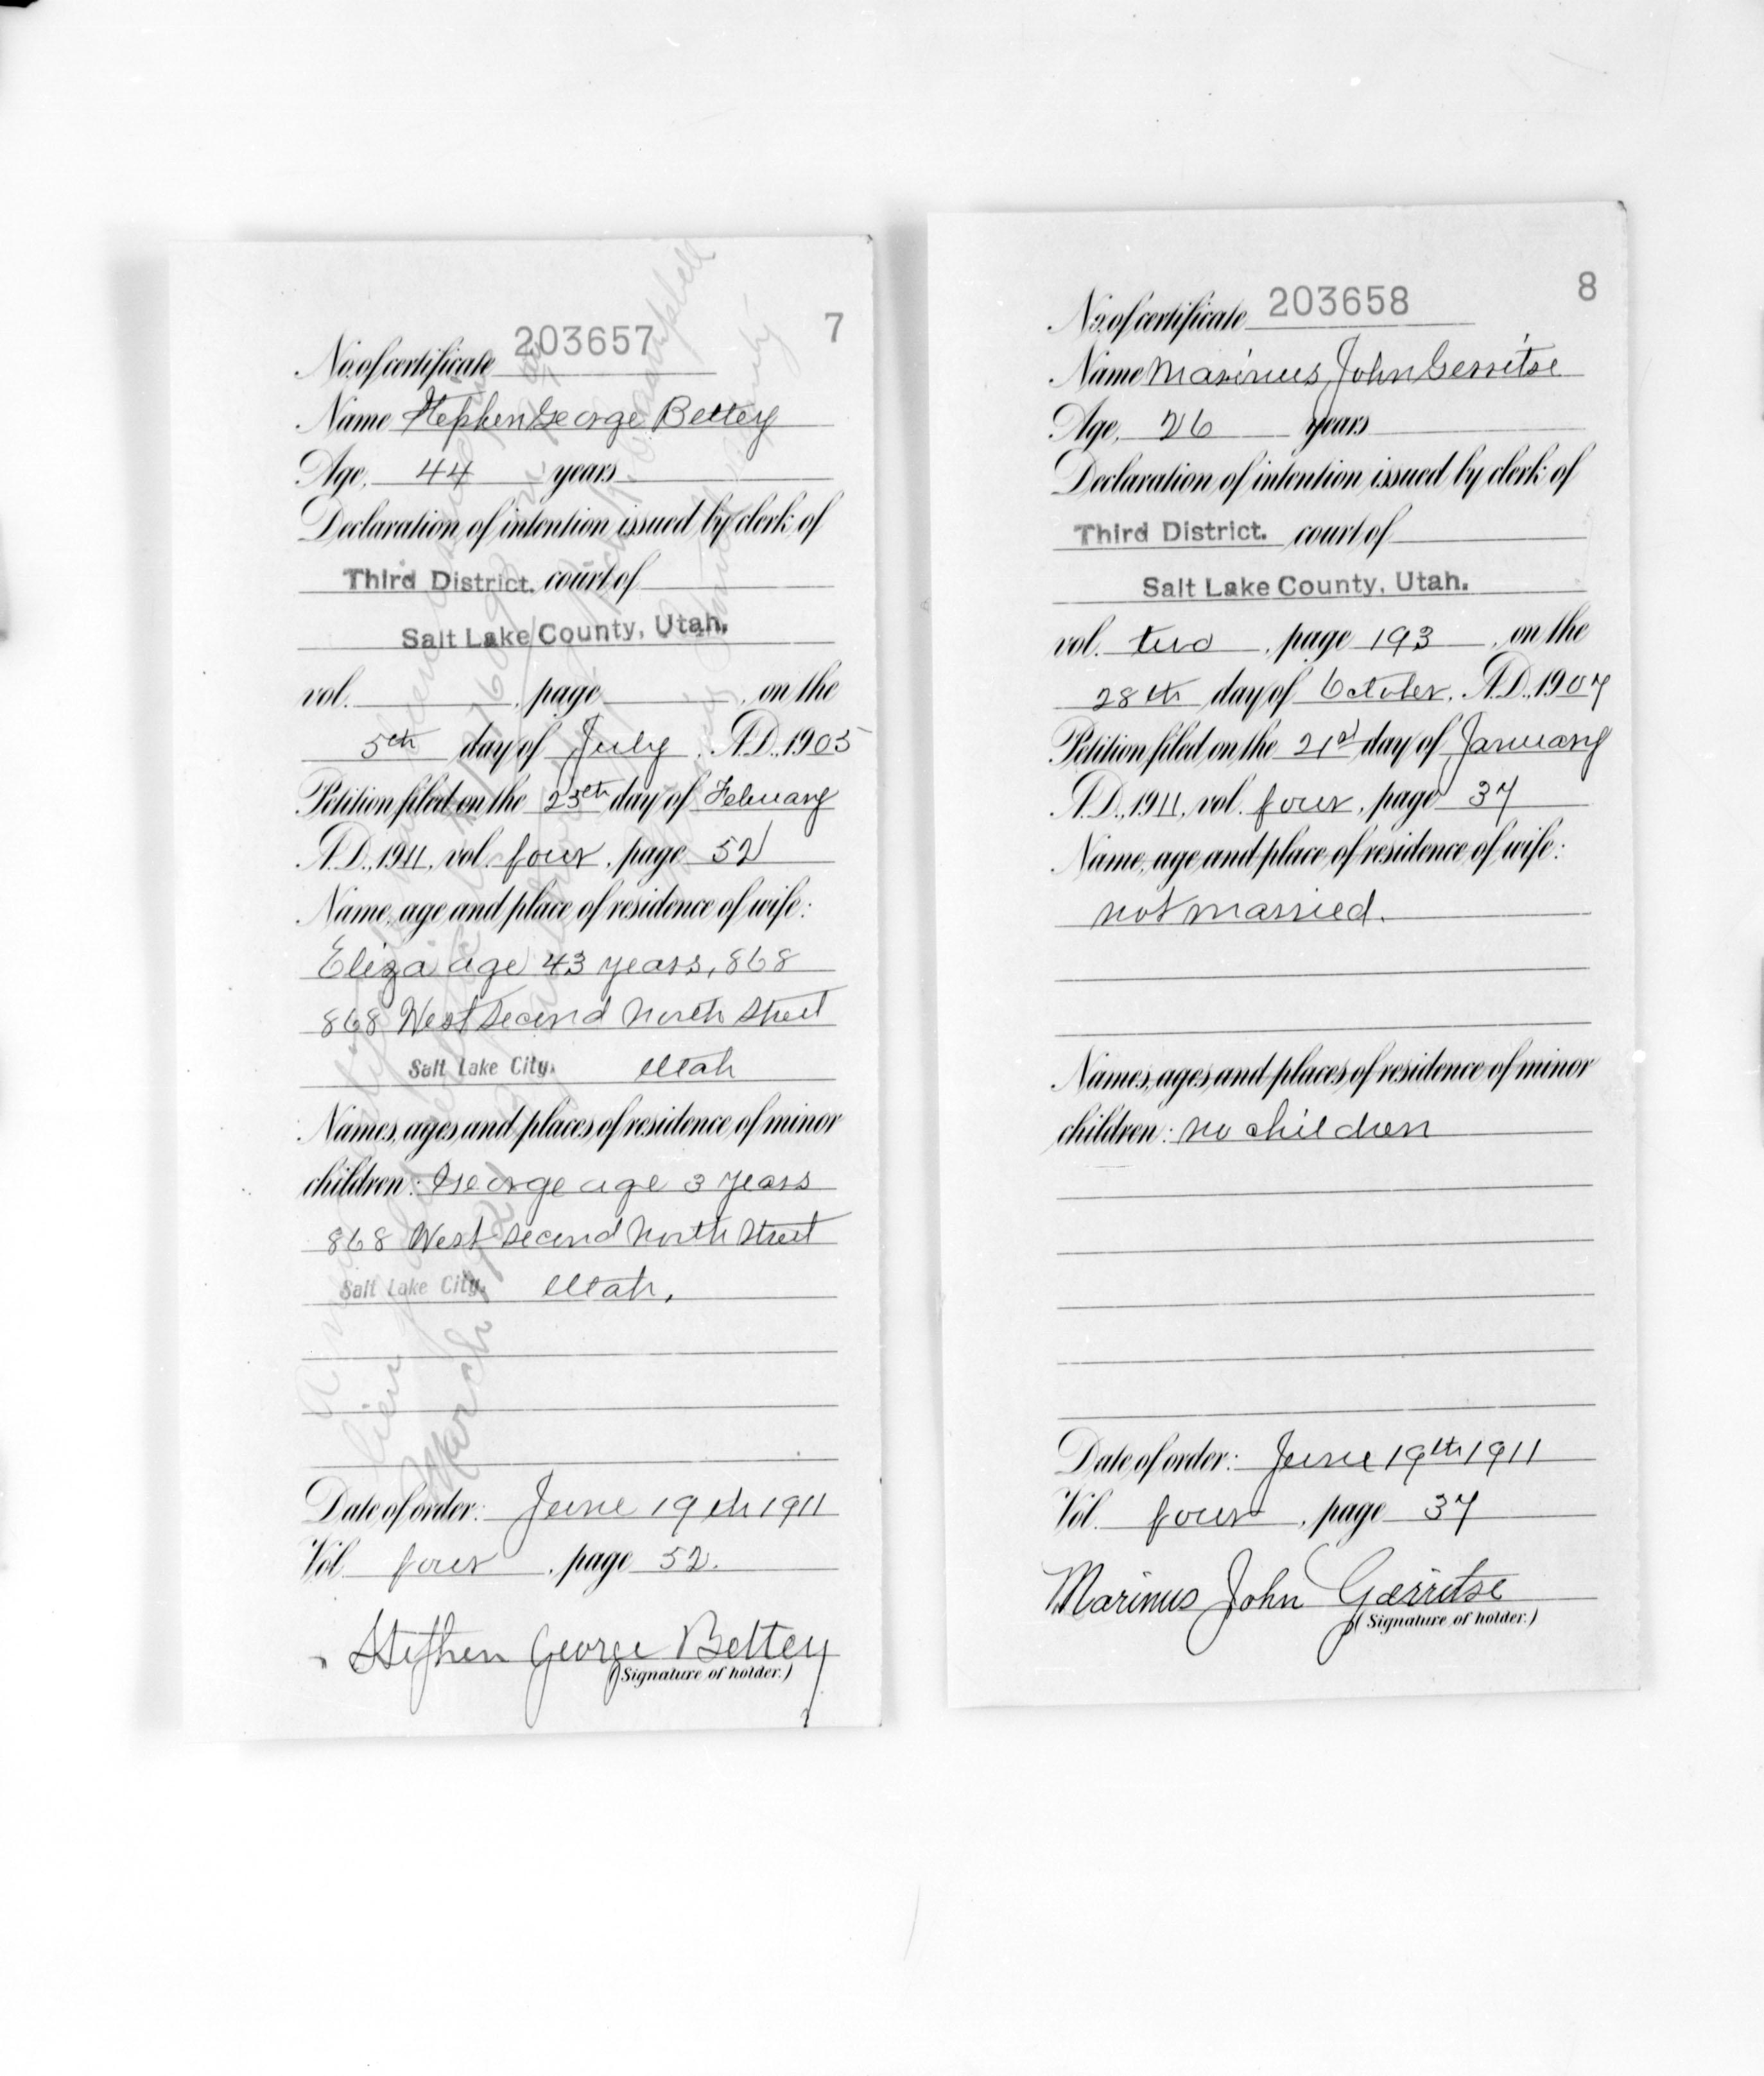 7
No. of certificate 203657
Name Stephen George Bettey
Age, 44 years
Declaration of intention issued by clerk of
Third District. court of
Salt Lake County, Utah.
vol. , page , on the
5th day of July, A.D. 1905
Petition filed on the 25th day of February
A.D. 1911, vol. four, page 52
Name, age and place of residence of wife:
Eliza age 43 years, 868
868 West Second North Street
Salt Lake City. Utah
Names, ages and places of residence of minor
children: George age 3 years
868 West Second North Street
Salt Lake City. Utah.
Date of order: June 19th 1911
Vol. four, page 52.
Stephen George Bettey
(Signature of holder.)
March
8
No. of certificate 203658
Name Marinus John Gerritse
Age, 26 years
Declaration of intention issued by clerk of
Third District. court of
Salt Lake County, Utah.
vol. two, page 193, on the
28th day of October, A.D. 1907
Petition filed on the 21st day of January
A.D. 1911, vol. four, page 37
Name, age and place of residence of wife:
not married.
Names, ages and places of residence of minor
children: no children
Date of order: June 19th 1911
Vol. four, page 37
Marinus John Gerritse
(Signature of holder.)